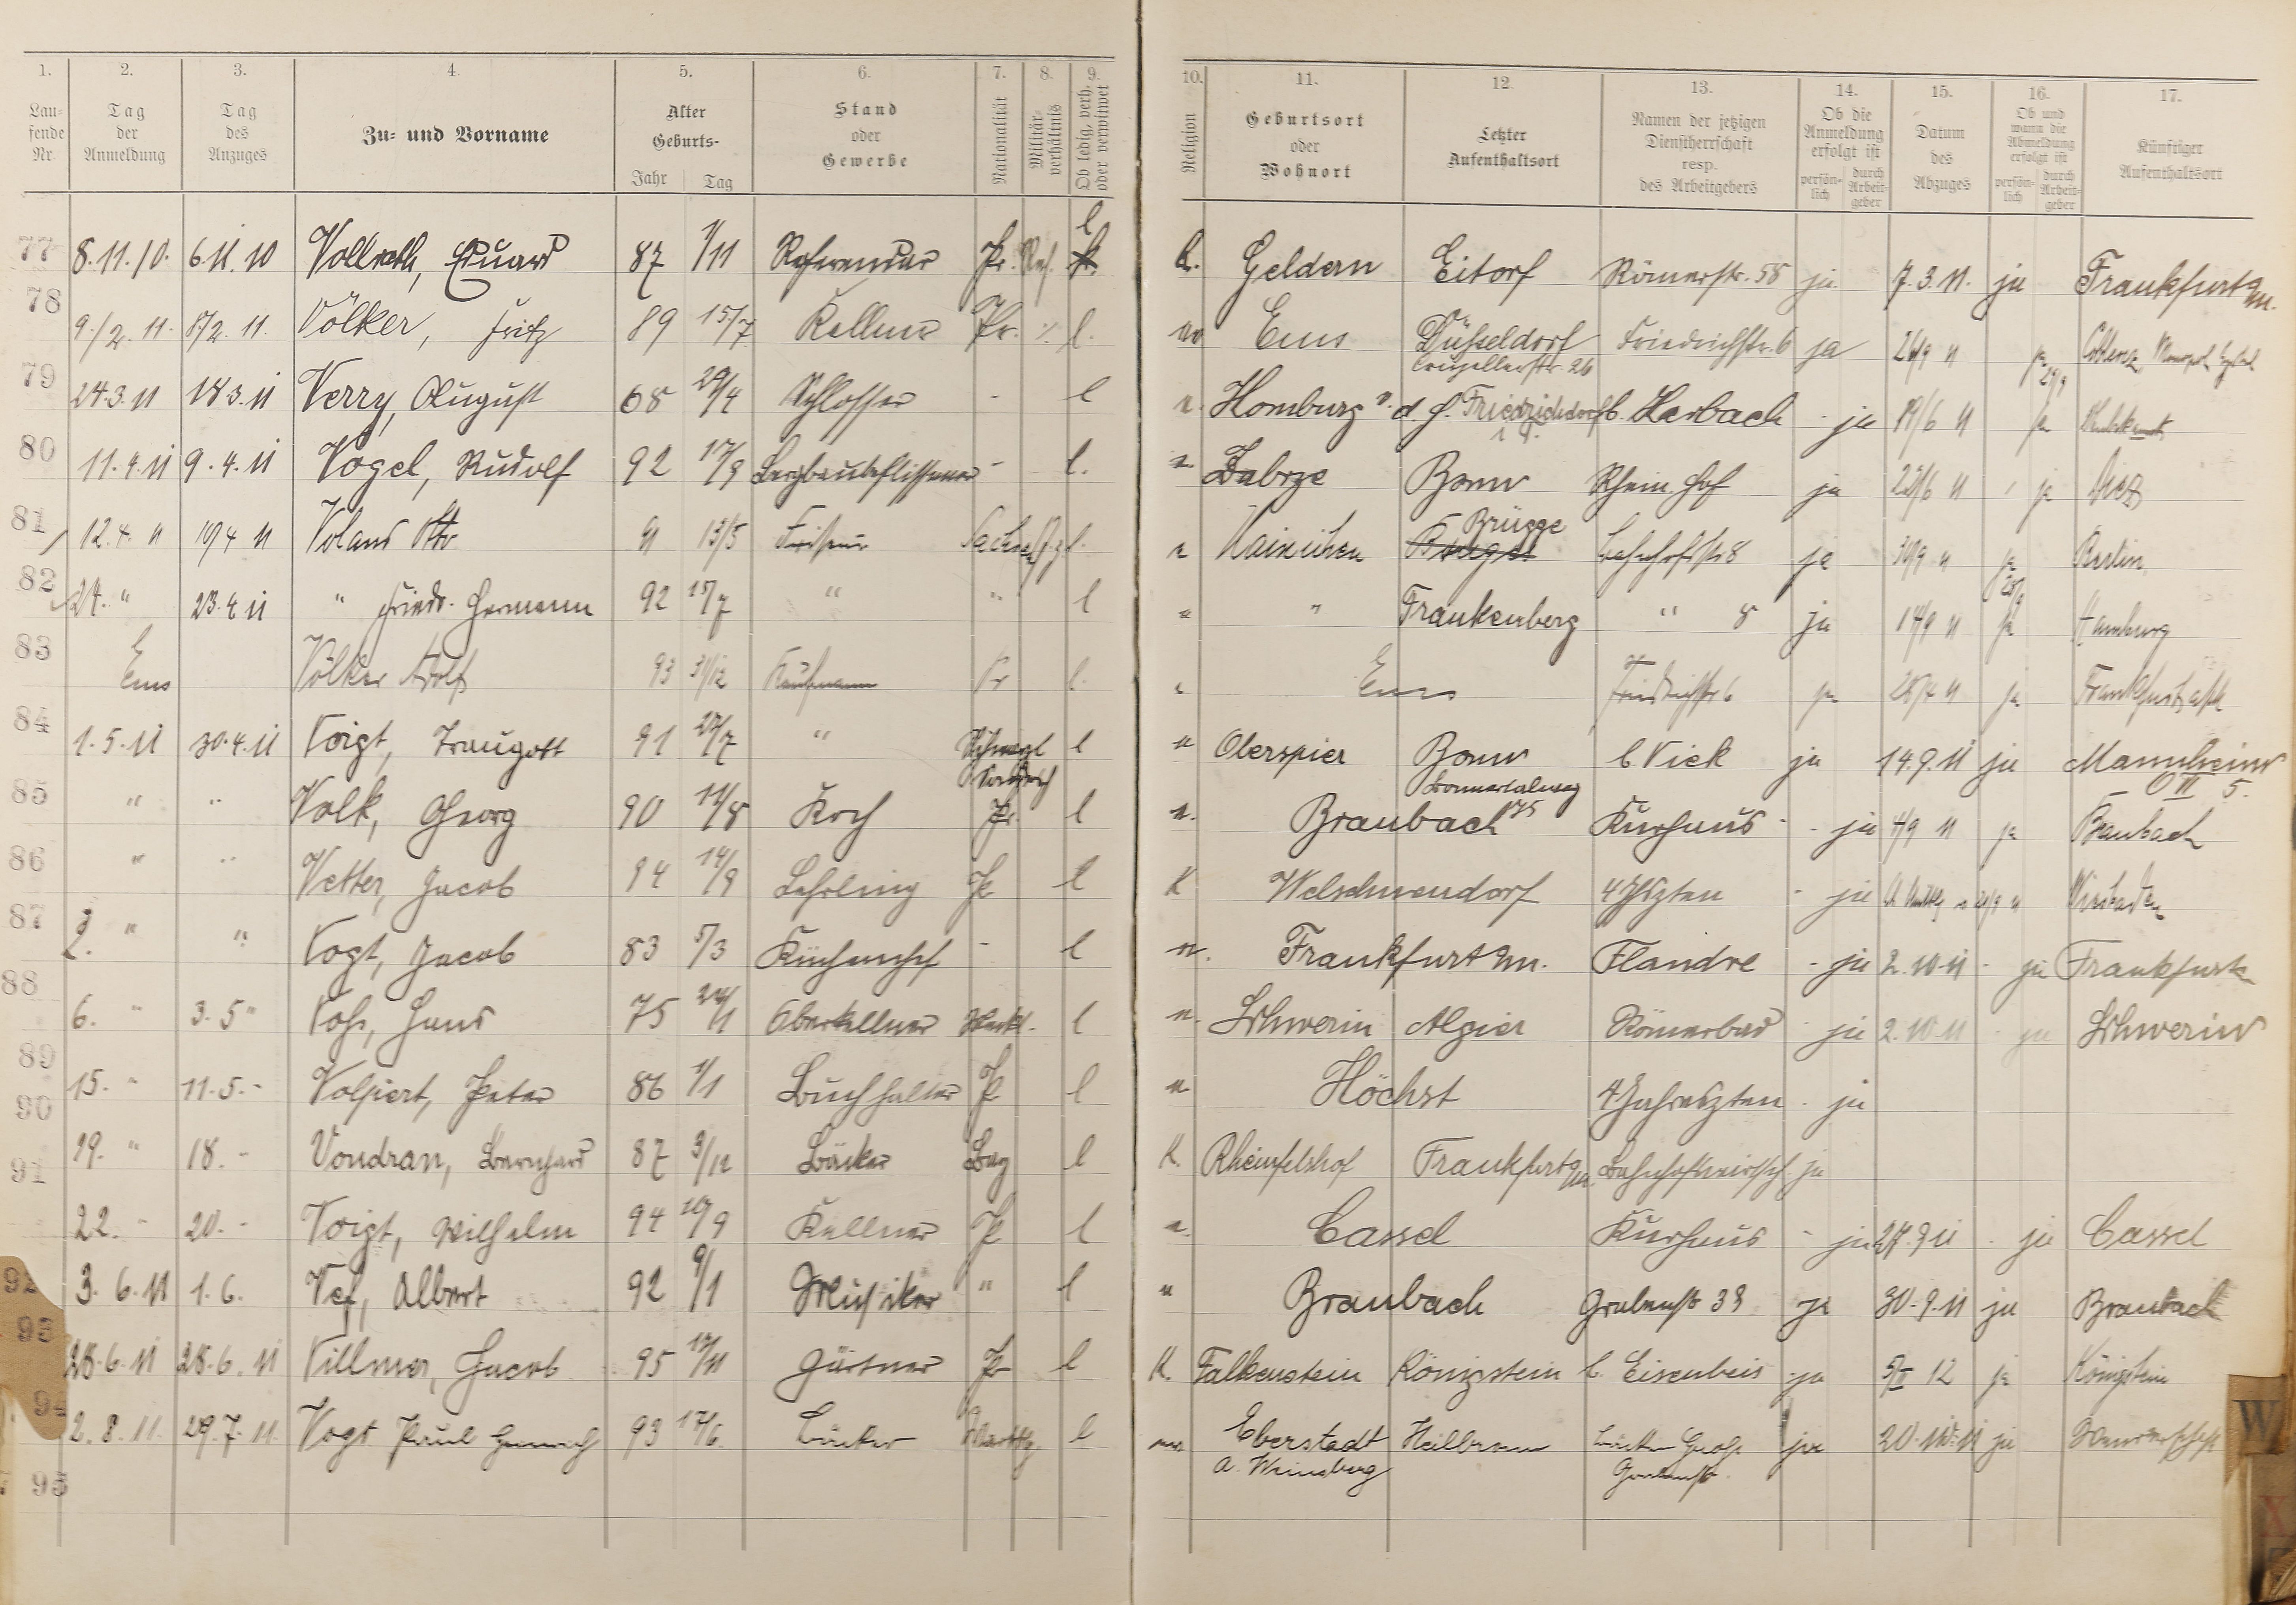 1. 2. 3. 4. 5. 6. 7. 8. 9. 10. 11. 12. 13. 14. 15. 16. 17.
Lau-
fende
Nr.
Tag
der
Anmeldung
Tag
des
Anzuges
Zu- und Vorname
Alter
Geburts-
Jahr Tag
Stand
oder
Gewerbe
Nationalität
Militär-
verhältnis
Ob ledig, verh.
oder verwitwet
Religion
Geburtsort
oder
Wohnort
Letzter
Aufenthaltsort
Namen der jetzigen
Dienstherrschaft
resp.
des Arbeitgebers
Ob die
Anmeldung
erfolgt ist
persön-
lich
durch
Arbeit-
geber
Datum
des
Abzuges
Ob und
wann die
Abmeldung
erfolgt ist
persön-
lich
durch
Arbeit-
geber
Künftiger
Aufenthaltsort
77 8.11.10. 6.11.10 Vollrath, Eduard 87 1/11 Referendar Pr. Ref. l k. Geldern Eitorf Römerstr. 58 ja 7.3.11. ja Frankfurt a/m.
78 9./2.11. 8/2.11. Völker, Fritz 89 15/7 Kellner Pr. l. Ems Düsseldorf Friedrichstr. 6 ja 26/9 11 ja
26
79 24.3.11 18.3.11 Verry, August 68 29/4 Schlosser - l Homburg v. d. H. Friedrichsdorf b. Herbach - ja 19/6 11 ja
80 11.4.11 9.4.11 Vogel, Rudolf 92 17/8 Bergbaubeflissener - l. Zabrze Bonn Rhein. Hof ja 22/6 11 ja Diez
Brügge
81 12.4.11 10/4 11 Voland Otto 91 13/5 Friseur Sachsen l. Hainichen Bahnhofstr 8 ja 30/9 11 ja Berlin
82 24. " 23.4.11 " Friedr. Hermann 92 15/7 " " l " " Frankenberg " 8 ja 14/9 11 ja Hamburg
83 Ems Völker Adolf 93 31/12 Kaufmann Pr l. Ems Friedrichstr 6 ja 28/4 11 ja Frankfurt
84 1.5.11 30.4.11 Voigt, Traugott 91 27/7 " l " Oberspier Bonn b. Vick ja 14.9.11 ja Mannheim
Bonnertalweg
175
O II 5.
85 " " Volk, Georg 90 11/8 Koch Pr. l Braubach Kurhaus - ja 4/9 11 ja Braubach
86 " " Vetter, Jacob 94 14/9 Lehrling Pr l K Welschneudorf - ja Wiesbaden
87 2. " " Vogt, Jacob 83 5/3 Küchenchef - l Frankfurt a/m. Flandre - ja 2.10.11 - ja Frankfurt
88 6. " 3.5 " Voss, Hans 75 24/1 Oberkellner Meckl. l Schwerin Algier Römerbad - ja 2.10.11 - ja Schwerin
89 15. " 11.5. " Volpert, Peter 86 1/1 Buchhalter Pr l " Höchst 4 Jahreszten - ja
90 19. " 18. " Vondran, Bernhard 87 3/12 Bäcker Bay l K. Rheinfelshof Frankfurt a/m. Bahnhofswirtsch ja
91 22. " 20. " Voigt, Wilhelm 94 10/9 Kellner Pr l Cassel Kurhaus - ja 27.9.11 - ja Cassel
92 3.6.11 1.6. Vef, Albert 92 9/1 Musiker " l " Braubach Grabenstr 33 ja 30.9.11 ja Braubach
93 28.6.11 28.6.11 Villmer, Jacob 95 17/11 Gärtner Pr l K. Falkenstein Königstein b. Eisenbeis ja 5/II 12 ja Königstein
94 2.8.11. 29.7.11 Vogt Paul 93 17/6 Bäcker l Eberstadt Heilbronn Bäcker Groß ja 20. 11 ja
a. Weinsberg Grabenstr.
95
W
X